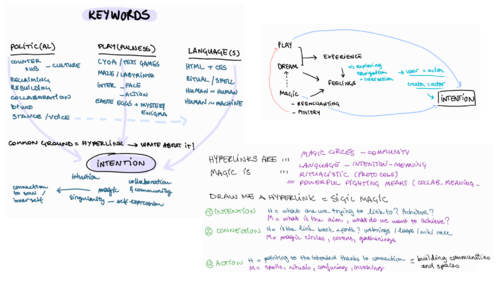 KEYWORDS
POLITIC(AL)
COUNTER
SUB - CULTURE
RECLAIMING
REBUILDING
COLLABORATION
STANCE / VOICE
PLAY(FULNESS)
CYOA / TEXT GAMES
MAZE / LABYRINTH
INTER_FACE
_ACTION
EASTER EGGS + MYSTERY
ENIGMA
LANGUAGE(S)
HTML + CSS
RITUAL / SPELL
HUMAN - HUMAN
HUMAN - MACHINE
COMMON GROUND = HYPERLINK → WRITE ABOUT IT!
INTENTION
intuition
connection
to self /
inner self
magic
collaboration
& community
singularity
self-expression
PLAY
DREAM
MAGIC
- REENCHANTING
- MYSTERY
EXPERIENCE
FEELINGS
exploring
navigation
interaction
INTENTION
HYPERLINKS ARE ...
MAGIC IS ...
MAGIC CIRCLES - COMMUNITY
LANGUAGES - INTENTION - MEANING
RITUALISTIC (PROTOCOLS)
POWERFUL FIGHTING MEANS (COLLAB. MEANING
DRAW ME A HYPERLINK = SIGIL MAGIC
① INTENTION H = what are we trying to link to? Achieve?
M = what is the aim, what do we want to achieve?
② CONNECTION H = is the link back a path? webrings / loops / wiki race
M = magic circles, covens, gatherings
③ ACTION H = pointing to the intended thanks to connection
M = spells, rituals, conjuring, invoking
= building communities
and spaces